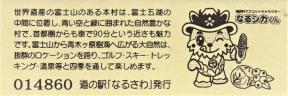 世界遺産の富士山のある本村は、富士五湖の
中間に位置し、青い空と緑に囲まれた自然豊かな
村で、首都圏からも車で90分という近さも魅力
です。富士山から青木ヶ原樹海へ広がる大自然は、
抜群のロケーションを誇り、ゴルフ・スキー・トレッ
キング・温泉等と四季を通して楽しめます。
014860 道の駅「なるさわ」発行
なるシカくん